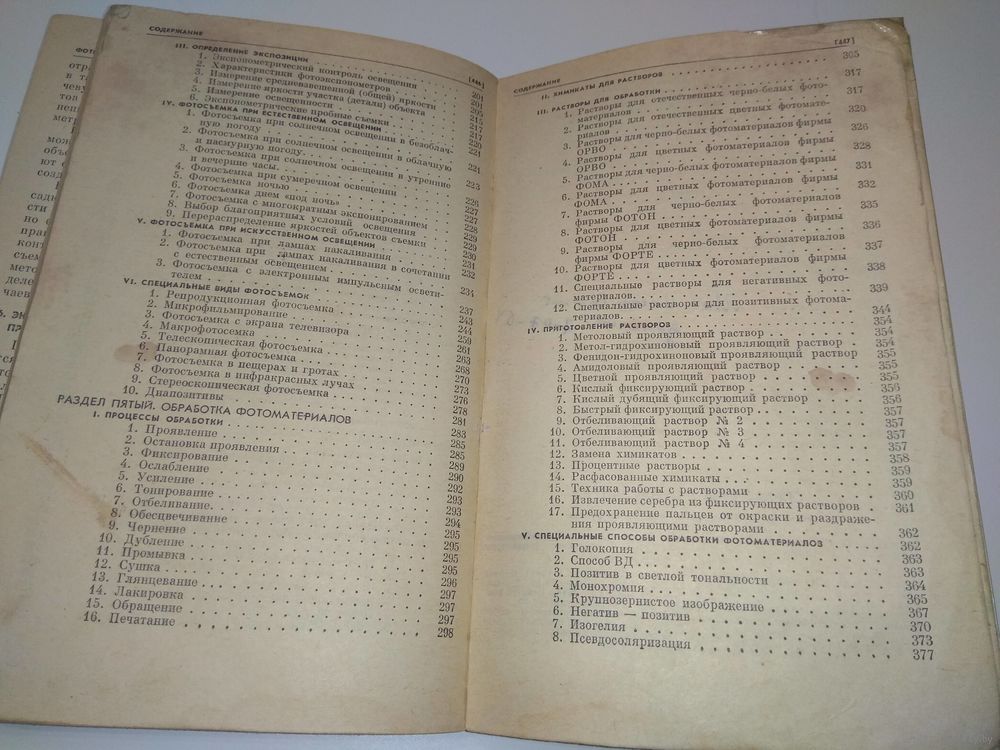 СОДЕРЖАНИЕ [446]
III. ОПРЕДЕЛЕНИЕ ЭКСПОЗИЦИИ 201
1. Экспонометрический контроль освещения
2. Характеристики фотоэкспонометров
3. Измерение средневзвешенной (общей) яркости
4. Измерение яркости участка (детали) объекта
5. Измерение освещенности 217
6. Экспонометрические пробные съемки 220
IV. ФОТОСЪЕМКА ПРИ ЕСТЕСТВЕННОМ ОСВЕЩЕНИИ 221
1. Фотосъемка при солнечном освещении в безоблач-
ную погоду 221
2. Фотосъемка при солнечном освещении в облачную
и пасмурную погоду 223
3. Фотосъемка при солнечном освещении в утренние
и вечерние часы 226
4. Фотосъемка при сумеречном освещении 227
5. Фотосъемка ночью 227
6. Фотосъемка днем «под ночь» 228
7. Фотосъемка с многократным экспонированием 229
8. Выбор благоприятных условий освещения 229
9. Перераспределение яркостей объектов съемки 230
V. ФОТОСЪЕМКА ПРИ ИСКУССТВЕННОМ ОСВЕЩЕНИИ 231
1. Фотосъемка при лампах накаливания 232
2. Фотосъемка при лампах накаливания в сочетании
с естественным освещением 234
3. Фотосъемка с электронным импульсным освети-
телем 237
VI. СПЕЦИАЛЬНЫЕ ВИДЫ ФОТОСЪЕМОК 243
1. Репродукционная фотосъемка 244
2. Микрофильмирование 259
3. Фотосъемка с экрана телевизора 261
4. Макрофотосемка 263
5. Телескопическая фотосъемка 268
6. Панорамная фотосъемка 270
7. Фотосъемка в пещерах и гротах 273
8. Фотосъемка в инфракрасных лучах 276
9. Стереоскопическая фотосъемка 278
10. Диапозитивы 281
РАЗДЕЛ ПЯТЫЙ. ОБРАБОТКА ФОТОМАТЕРИАЛОВ 283
I. ПРОЦЕССЫ ОБРАБОТКИ 285
1. Проявление 285
2. Остановка проявления 289
3. Фиксирование 290
4. Ослабление 292
5. Усиление 293
6. Тонирование 293
7. Отбеливание 294
8. Обесцвечивание 295
9. Чернение 295
10. Дубление 295
11. Промывка 295
12. Сушка 296
13. Глянцевание 297
14. Лакировка 297
15. Обращение 297
16. Печатание 298
СОДЕРЖАНИЕ [447]
II. ХИМИКАТЫ ДЛЯ РАСТВОРОВ 305
III. РАСТВОРЫ ДЛЯ ОБРАБОТКИ 317
1. Растворы для отечественных черно-белых фото-
материалов 317
2. Растворы для отечественных цветных фотомате-
риалов 320
3. Растворы для черно-белых фотоматериалов фирмы
ОРВО 326
4. Растворы для цветных фотоматериалов фирмы
ОРВО 328
5. Растворы для черно-белых фотоматериалов фирмы
ФОМА 331
6. Растворы для цветных фотоматериалов фирмы
ФОМА 332
7. Растворы для черно-белых фотоматериалов
фирмы ФОТОН 335
8. Растворы для цветных фотоматериалов фирмы
ФОТОН 336
9. Растворы для черно-белых фотоматериалов
фирмы ФОРТЕ 337
10. Растворы для цветных фотоматериалов фирмы
ФОРТЕ 338
11. Специальные растворы для негативных фото-
материалов 339
12. Специальные растворы для позитивных фотома-
териалов 344
IV. ПРИГОТОВЛЕНИЕ РАСТВОРОВ 354
1. Метоловый проявляющий раствор 354
2. Метол-гидрохиноновый проявляющий раствор 354
3. Фенидон-гидрохиноновый проявляющий раствор 355
4. Амидоловый проявляющий раствор 355
5. Цветной проявляющий раствор 355
6. Кислый фиксирующий раствор 356
7. Кислый дубящий фиксирующий раствор 356
8. Быстрый фиксирующий раствор 357
9. Отбеливающий раствор № 2 357
10. Отбеливающий раствор № 3 357
11. Отбеливающий раствор № 4 357
12. Замена химикатов 358
13. Процентные растворы 359
14. Расфасованные химикаты 359
15. Техника работы с растворами 360
16. Извлечение серебра из фиксирующих растворов 361
17. Предохранение пальцев от окраски и раздраже-
ния проявляющими растворами 362
V. СПЕЦИАЛЬНЫЕ СПОСОБЫ ОБРАБОТКИ ФОТОМАТЕРИАЛОЗ 362
1. Голокопия 363
2. Способ ВД 363
3. Позитив в светлой тональности 364
4. Монохромия 365
5. Крупнозернистое изображение 367
6. Негатив — позитив 370
7. Изогелия 373
8. Псевдосоляризация 377